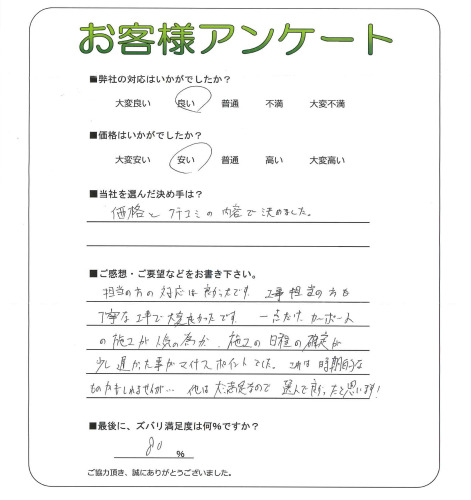 お客様アンケート
■弊社の対応はいかがでしたか?
大変良い 良い 普通 不満 大変不満
■価格はいかがでしたか?
大変安い 安い 普通 高い 大変高い
■当社を選んだ決め手は?
価格と クチコミの内容で決めました。
■ご感想・ご要望などをお書き下さい。
担当の方の対応は良かったです。工事担当の方も
丁寧な工事で大変良かったです。一点だけ、カーポート
の施工が人気の為か、施工の日程の確定が
少し遅かった事がマイナスポイントでした。これは時期的な
ものかもしれませんが… 他は大満足なので 選んで良かったと思います!
■最後に、ズバリ満足度は何%ですか?
80 %
ご協力頂き、誠にありがとうございました。